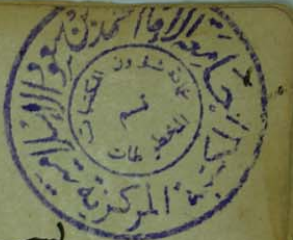 جامعة الامام محمد بن سعود الاسلامية
المركزية
عمادة شؤون المكتبات
قسم
المخطوطات